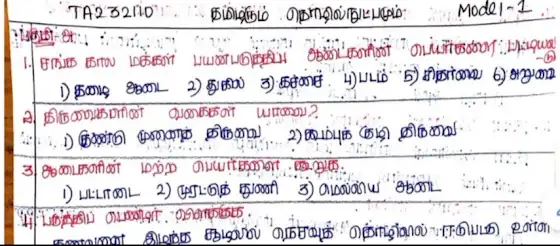 TA23211D தமிழரும் தொழில்நுட்பமும் Model-1
பகுதி-அ
1. சங்க கால மக்கள் பயன்படுத்திய ஆடைகளின் பெயர்களை பட்டியலிடு
1) தழை ஆடை 2) துகில் 3) கச்சை 4) படம் 5) சிதர்வை 6) அறுவை
2. திருவைகளின் வகைகள் யாவை?
1) குண்டு முனைத் திருவை 2) கூம்புக் குடி திருவை
3. ஆடைகளின் மற்ற பெயர்களை கூறுக.
1) பட்டாடை 2) முரட்டுத் துணி 3) மெல்லிய ஆடை
4. பருத்திப் பெண்டிர் விளக்குக
கணவனை இழந்த சூழலில் நெசவுத் தொழிலில் ஈடுபட்டு உள்ள